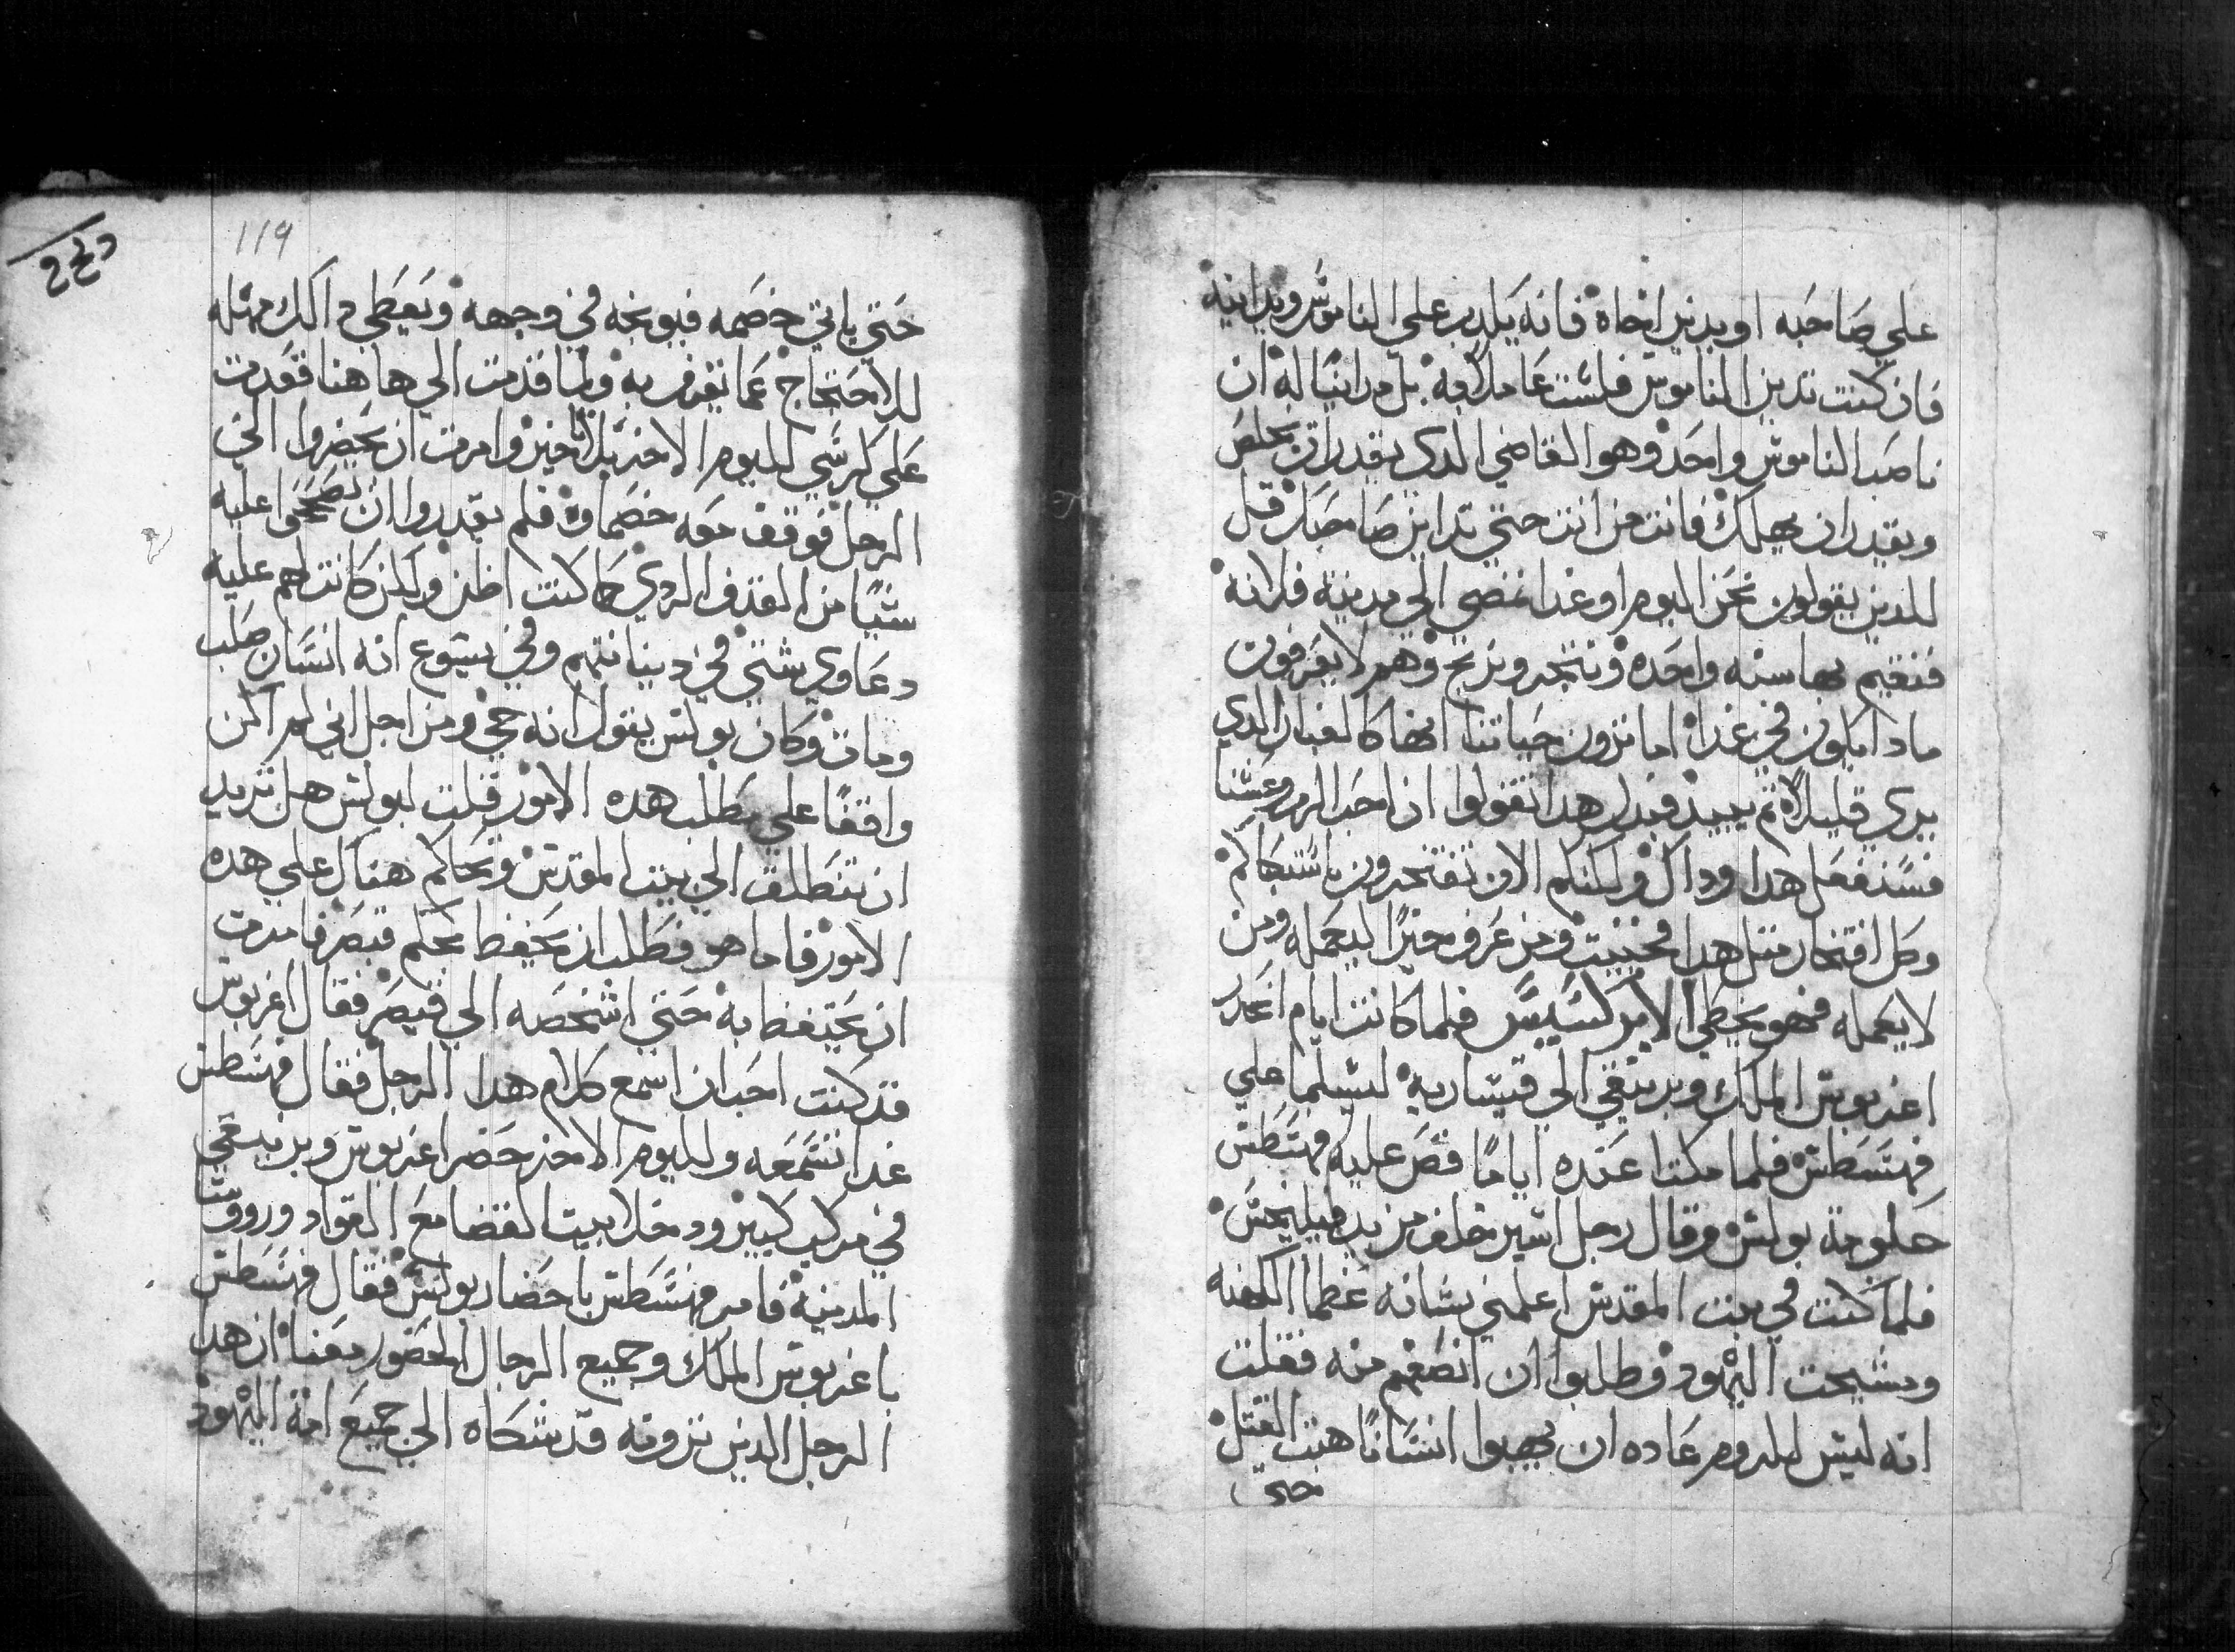 علي صاحبه او يدين اخاه فانه يلدب علي الناموس ويداينه
فان كنت تدين الناموس فلست عاملا به بل مداينا له ان
ناصب الناموس واحد وهو القاضي الدي يقدر ان يخلص
ويقدر ان يهلك فانت من انت حتي تداين صاحبك قل
للدين يقولون نحن اليوم او غدا نمضي الي مدينه فلانه
فنقيم بها سنه واحده ونتجر ونربح وهم لا يعرفون
مادا يكون في غدا اما ترون حياتنا انها كالغبار الدي
يري قليلا ثم يبيد فبدل هدا تقولوا ان احب الرب وعشنا
فسنفعل هدا وداك ولكنكم الان تفتخرون باستبكاكم
وكل افتخار متل هدا فخبيت ومن عرف خيرا ليعمله ومن
لا يعمله فهو يخطي الابركسيس فلما كانت ايام انحدر
اغربوس الملك وبرنيقي الي قيسارية ليسلما علي
فهسطس فلما مكتا عنده اياما قص عليه فهسطس
حكومة بولس وقال رجل اسير تخلف من يد فيليخس
فلما كنت في بيت المقدس اعلمني بشانه عظما الكهنه
ومشيخت اليهود وطلبوا ان انصفهم منه فقلت
انه ليس للروم عاده ان يهبوا انسانا هبت القتل
حتي
119
حتي ياتي خصمه فيوبخه في وجهه ويعطي داك مهله
للاحتجاج عما يقرف به ولما قدمت الي هاهنا قعدت
علي كرسي لليوم الاخر بلا تاخير وامرت ان يحضروا الي
الرجل فوقف معه خصماوه فلم يقدروا ان يصححوا عليه
شيا من القدف الردي كما كنت اظن ولكن كانت لهم عليه
دعاوي شتي في ديانتهم وفي يسوع انه انسان صلب
ومات وكان بولس يقول انه حي ومن اجل اني لم اكن
واقفا علي مطلب هده الامور قلت لبولس هل تريد
ان تنطلق الي بيت المقدس وتحاكم هناك علي هده
الامور فاما هو فطلب ان يحفظ لحكم قيصر فامرت
ان يحتفظ به حتي اشخصه الي قيصر فقال اغربوس
قد كنت احب ان اسمع كلام هدا الرجل فقال فهسطس
غدا تسمعه ولليوم الاخر حضر اغربوس وبرنيقي
في مركب كبير ودخلا بيت القضا مع القواد ورووسا
المدينة فامر فهسطس باحضار بولس فقال فهسطس
ياغربوس الملك وجميع الرجال الحضور معنا ان هدا
الرجل الدين ترونه قد شكاه الي جميع امة اليهود